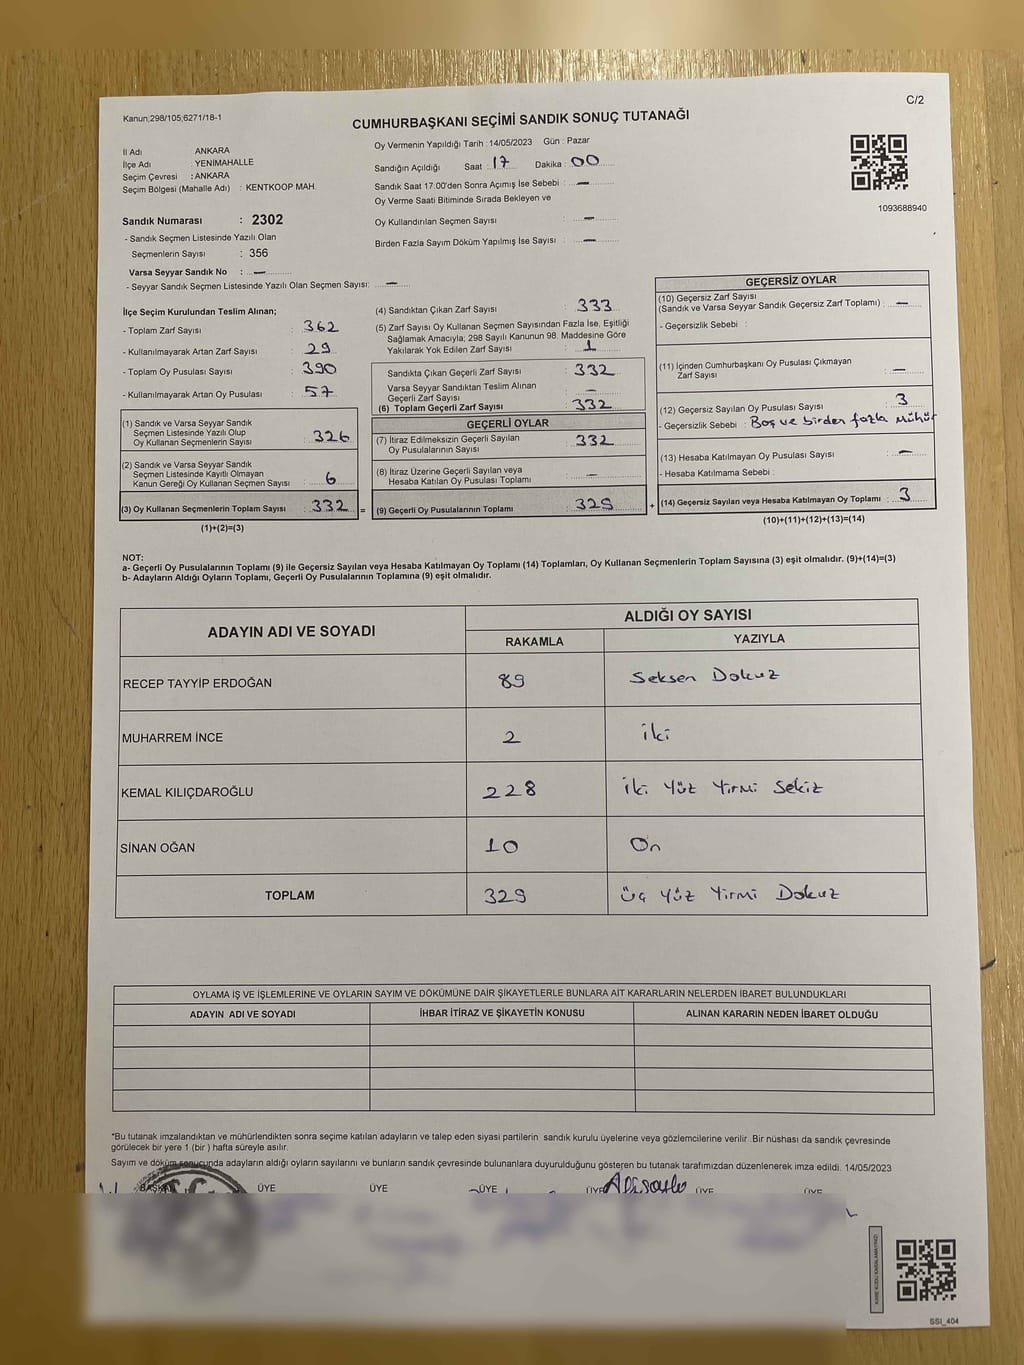 C/2
Kanun;298/105;6271/18-1
CUMHURBAŞKANI SEÇİMİ SANDIK SONUÇ TUTANAĞI
İl Adı ANKARA
İlçe Adı : YENİMAHALLE
Seçim Çevresi : ANKARA
Seçim Bölgesi (Mahalle Adı) : KENTKOOP MAH.
Sandık Numarası : 2302
- Sandık Seçmen Listesinde Yazılı Olan
Seçmenlerin Sayısı : 356
Varsa Seyyar Sandık No : —
- Seyyar Sandık Seçmen Listesinde Yazılı Olan Seçmen Sayısı: —
Oy Vermenin Yapıldığı Tarih : 14/05/2023 Gün : Pazar
Sandığın Açıldığı Saat : 17 Dakika : 00
Sandık Saat 17:00'den Sonra Açımış İse Sebebi : —
Oy Verme Saati Bitiminde Sırada Bekleyen ve
Oy Kullandırılan Seçmen Sayısı : —
Birden Fazla Sayım Döküm Yapılmış İse Sayısı : —
1093688940
İlçe Seçim Kurulundan Teslim Alınan;
- Toplam Zarf Sayısı : 362
- Kullanılmayarak Artan Zarf Sayısı : 29
- Toplam Oy Pusulası Sayısı : 390
- Kullanılmayarak Artan Oy Pusulası : 57
(1) Sandık ve Varsa Seyyar Sandık
Seçmen Listesinde Yazılı Olup
Oy Kullanan Seçmenlerin Sayısı : 326
(2) Sandık ve Varsa Seyyar Sandık
Seçmen Listesinde Kayıtlı Olmayan
Kanun Gereği Oy Kullanan Seçmen Sayısı : 6
(3) Oy Kullanan Seçmenlerin Toplam Sayısı : 332 =
(1)+(2)=(3)
(4) Sandıktan Çıkan Zarf Sayısı : 333
(5) Zarf Sayısı Oy Kullanan Seçmen Sayısından Fazla İse, Eşitliği
Sağlamak Amacıyla; 298 Sayılı Kanunun 98. Maddesine Göre
Yakılarak Yok Edilen Zarf Sayısı : 1
Sandıkta Çıkan Geçerli Zarf Sayısı : 332
Varsa Seyyar Sandıktan Teslim Alınan
Geçerli Zarf Sayısı : —
(6) Toplam Geçerli Zarf Sayısı : 332
GEÇERLİ OYLAR
(7) İtiraz Edilmeksizin Geçerli Sayılan
Oy Pusulalarının Sayısı : 332
(8) İtiraz Üzerine Geçerli Sayılan veya
Hesaba Katılan Oy Pusulası Toplamı : —
(9) Geçerli Oy Pusulalarının Toplamı : 329 +
GEÇERSİZ OYLAR
(10) Geçersiz Zarf Sayısı
(Sandık ve Varsa Seyyar Sandık Geçersiz Zarf Toplamı) : —
- Geçersizlik Sebebi :
(11) İçinden Cumhurbaşkanı Oy Pusulası Çıkmayan
Zarf Sayısı : —
(12) Geçersiz Sayılan Oy Pusulası Sayısı : 3
- Geçersizlik Sebebi : Boş ve birden fazla mühür
(13) Hesaba Katılmayan Oy Pusulası Sayısı : —
- Hesaba Katılmama Sebebi :
(14) Geçersiz Sayılan veya Hesaba Katılmayan Oy Toplamı : 3
(10)+(11)+(12)+(13)=(14)
NOT:
a- Geçerli Oy Pusulalarının Toplamı (9) ile Geçersiz Sayılan veya Hesaba Katılmayan Oy Toplamı (14) Toplamları, Oy Kullanan Seçmenlerin Toplam Sayısına (3) eşit olmalıdır. (9)+(14)=(3)
b- Adayların Aldığı Oyların Toplamı, Geçerli Oy Pusulalarının Toplamına (9) eşit olmalıdır.
ADAYIN ADI VE SOYADI ALDIĞI OY SAYISI
RAKAMLA YAZIYLA
RECEP TAYYİP ERDOĞAN 89 Seksen Dokuz
MUHARREM İNCE 2 iki
KEMAL KILIÇDAROĞLU 228 iki Yüz Yirmi Sekiz
SİNAN OĞAN 10 On
TOPLAM 329 üç Yüz Yirmi Dokuz
OYLAMA İŞ VE İŞLEMLERİNE VE OYLARIN SAYIM VE DÖKÜMÜNE DAİR ŞİKAYETLERLE BUNLARA AİT KARARLARIN NELERDEN İBARET BULUNDUKLARI
ADAYIN ADI VE SOYADI İHBAR İTİRAZ VE ŞİKAYETİN KONUSU ALINAN KARARIN NEDEN İBARET OLDUĞU
*Bu tutanak imzalandıktan ve mühürlendikten sonra seçime katılan adayların ve talep eden siyasi partilerin sandık kurulu üyelerine veya gözlemcilerine verilir. Bir nüshası da sandık çevresinde
görülecek bir yere 1 (bir) hafta süreyle asılır.
Sayım ve döküm sonucunda adayların aldığı oyların sayılarını ve bunların sandık çevresinde bulunanlara duyurulduğunu gösteren bu tutanak tarafımızdan düzenlenerek imza edildi. 14/05/2023
BAŞKAN ÜYE ÜYE ÜYE ÜYE ÜYE ÜYE
SSI_404